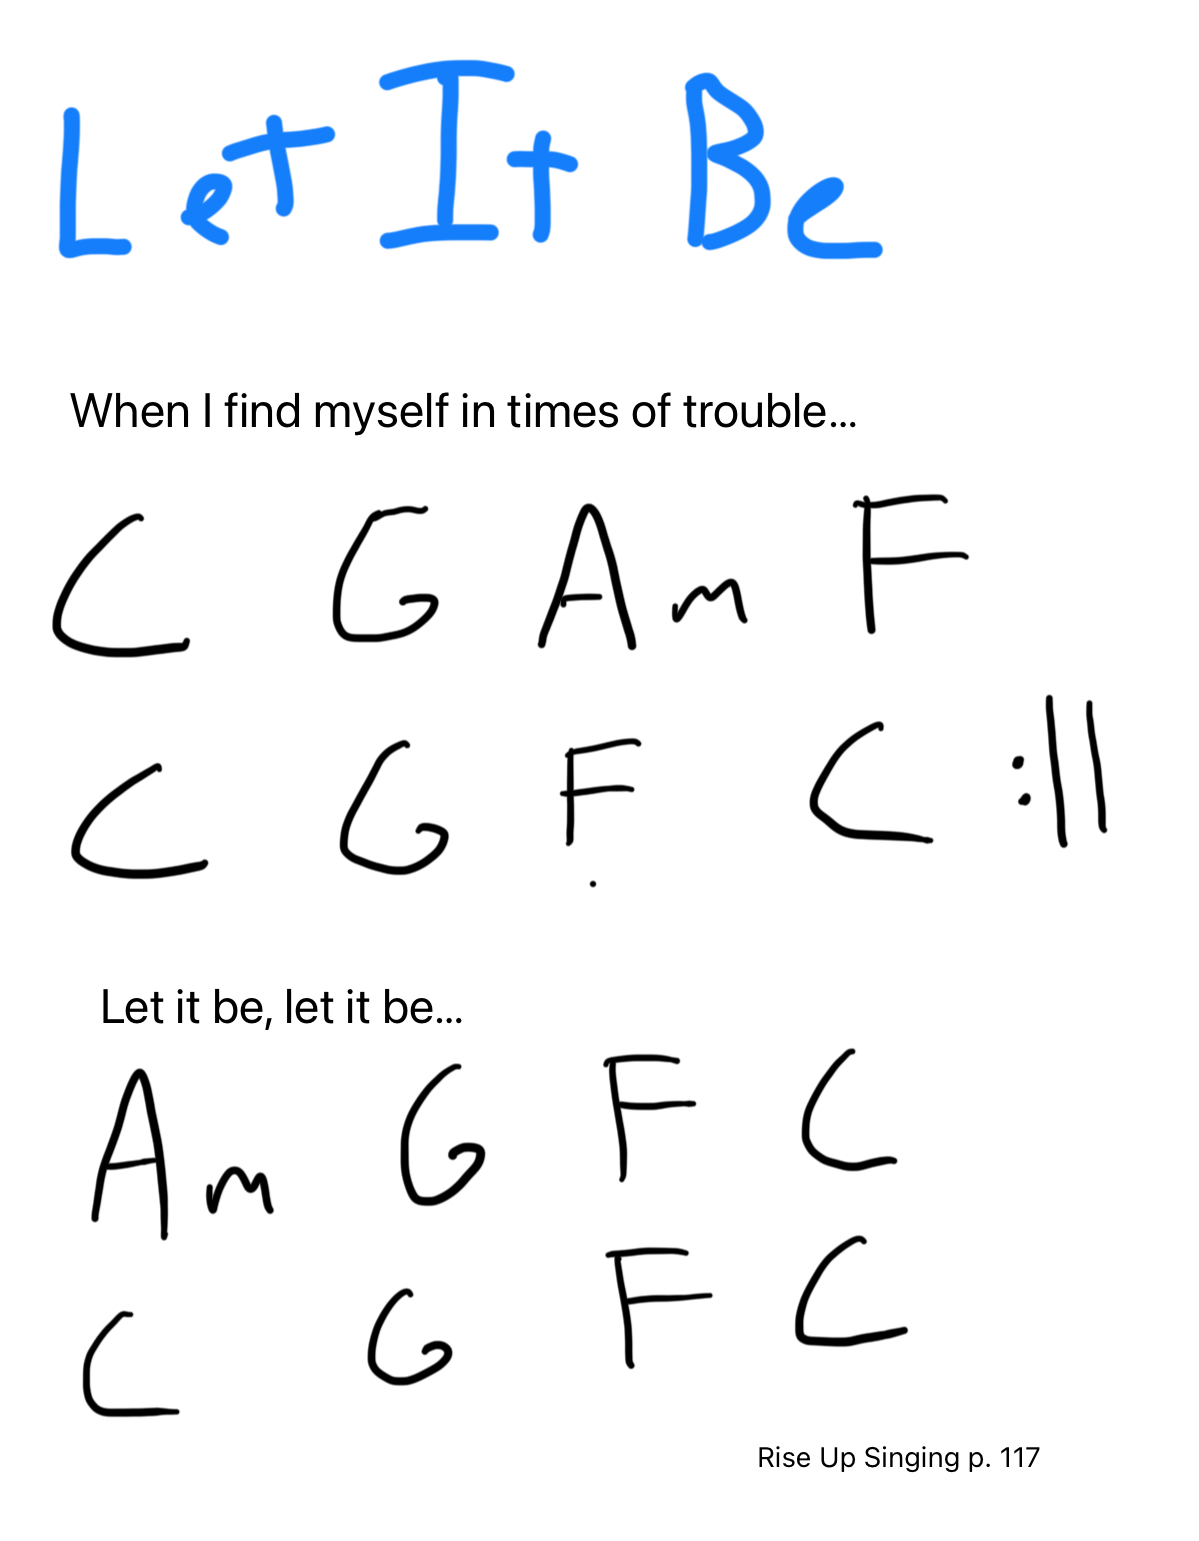 Let It Be
When I find myself in times of trouble...
C G Am F
C G F C :||
Let it be, let it be...
Am G F C
C G F C
Rise Up Singing p. 117